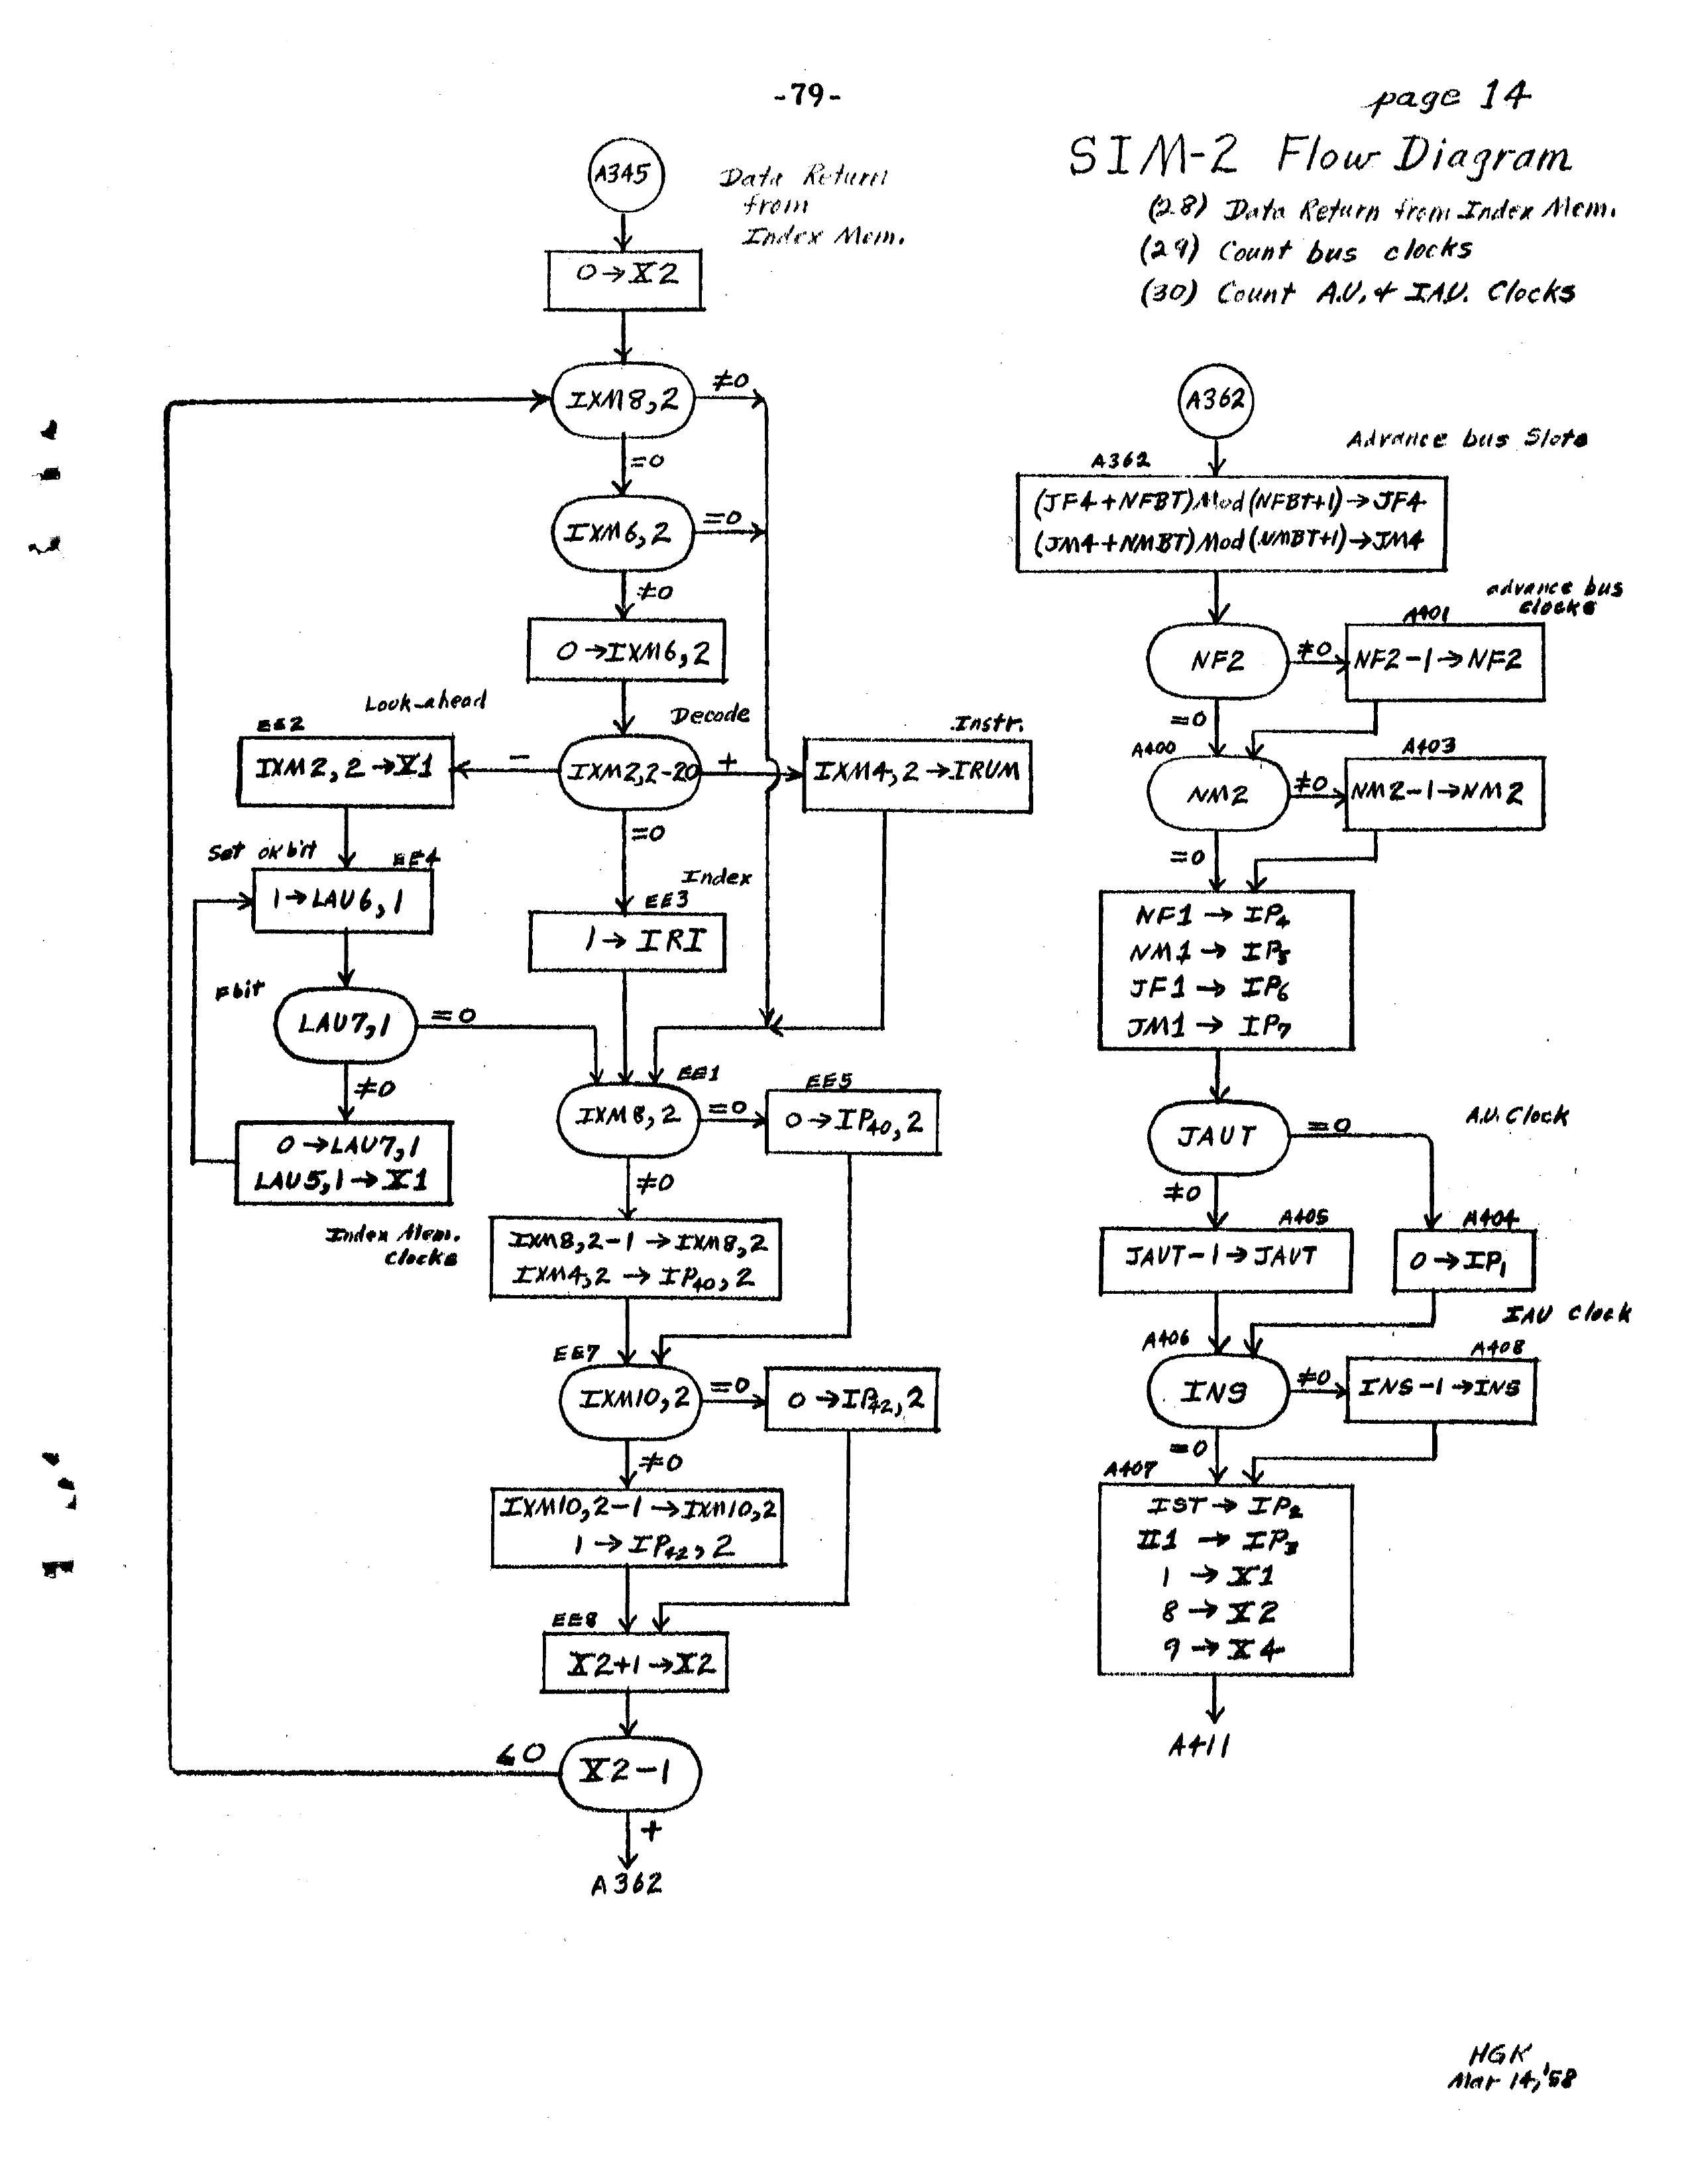 -79-
page 14
SIM-2 Flow Diagram
(28) Data Return from Index Mem.
(29) Count bus clocks
(30) Count A.U. & I.A.U. Clocks
A345
Data Return
from
Index Mem.
0→X2
IXM8,2
≠0
=0
IXM6,2
=0
≠0
0→IXM6,2
Look-ahead
Decode
Instr.
EE2
IXM2,2→X1
−
IXM2,2-20
+
IXM4,2→IRUM
=0
Set ok bit
EE4
1→LAU6,1
Index
EE3
1→IRI
F bit
LAU7,1
=0
≠0
0→LAU7,1
LAU5,1→X1
EE1
IXM8,2
=0
EE5
0→IP40,2
≠0
Index Mem.
Clocks
IXM8,2-1→IXM8,2
IXM4,2→IP40,2
EE7
IXM10,2
=0
0→IP42,2
≠0
IXM10,2-1→IXM10,2
1→IP42,2
EE8
X2+1→X2
≤0
X2-1
+
A362
A362
Advance bus Slots
A362
(JF4+NFBT)Mod(NFBT+1)→JF4
(JM4+NMBT)Mod(NMBT+1)→JM4
advance bus
clocks
A401
NF2
≠0
NF2-1→NF2
=0
A400
A403
NM2
≠0
NM2-1→NM2
=0
NF1→IP4
NM1→IP5
JF1→IP6
JM1→IP7
A.U. Clock
JAUT
=0
≠0
A405
JAUT-1→JAUT
A404
0→IP1
IAU Clock
A406
A408
INS
≠0
INS-1→INS
=0
A407
IST→IP2
II1→IP3
1→X1
8→X2
9→X4
A411
HGK
Mar 14,'58